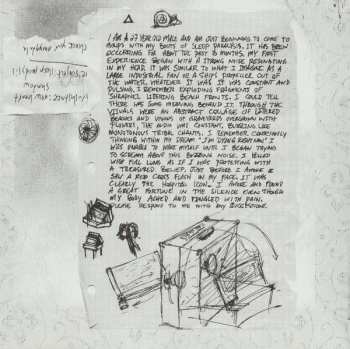 I AM A 27 YEAR OLD MALE AND AM JUST BEGINNING TO COME TO
GRIPS WITH MY BOUTS OF SLEEP PARALYSIS. IT HAS BEEN
OCCURRING FOR ABOUT THE PAST 8 MONTHS. MY FIRST
EXPERIENCE BEGAN WITH A STRONG NOISE RESONATING
IN MY HEAD. IT WAS SIMILAR TO WHAT I IMAGINE AS A
LARGE INDUSTRIAL FAN OR A SHIPS PROPELLER OUT OF
THE WATER. WHATEVER IT WAS IT WAS CONSTANT AND
PULSING. I REMEMBER EXPLODING FRAGMENTS OF
SHRAPNEL LITTERING BEACH FRONTS. I COULD TELL
THERE WAS SOME MEANING BEHIND IT. THROUGH THE
VISUALS WERE AN ABSTRACT COLLAGE OF LITTERED
BEACHES AND VISIONS OF GRAVEYARDS OVERGROWN WITH
FLOWERS. THE AUDIO WAS CONSTANT, BUZZING LIKE
MONOTONOUS TRIBAL CHANTS. I REMEMBER CONSTANTLY
THINKING WITHIN MY DREAM "I'M DYING RIGHT NOW". I
WAS UNABLE TO WAKE MYSELF UNTIL I BEGAN TRYING
TO SCREAM ABOVE THIS BUZZING NOISE. I YELLED
WITH FULL LUNGS AS IF I WAS PROTESTING WITH
A TREASURED BELIEF. JUST BEFORE I AWOKE I
SAW A RED CROSS FLASH IN MY FACE. IT WAS
CLEARLY THE HOSPITAL ICON. I AWOKE AND FOUND
A GREAT COMFORT IN THE SILENCE EVEN THOUGH
MY BODY ACHED AND TINGLED WITH PAIN.
PLEASE RESPOND TO ME WITH ANY